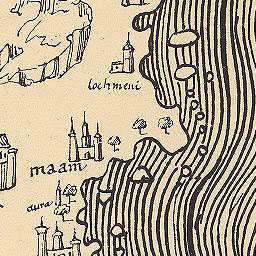 lochmeni
maam
aura